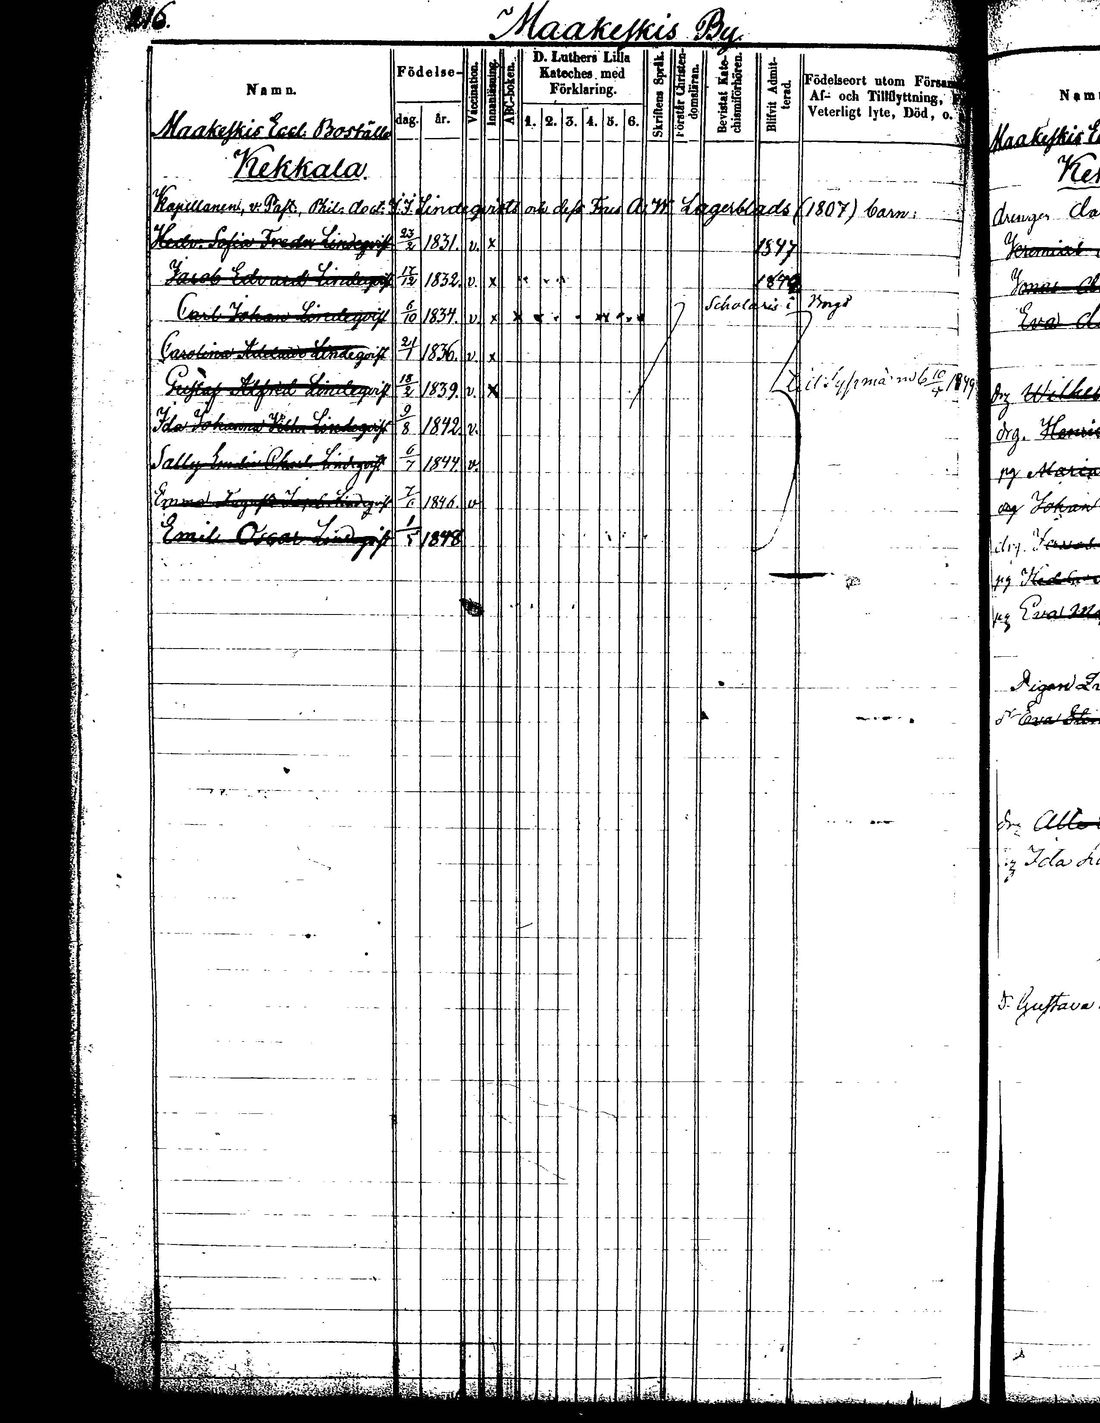 216.
Maakeskis By.
Namn.
Födelse-
dag.
år.
Vaccination.
Innanläsning.
ABC-boken.
D. Luthers Lilla
Kateches med
Förklaring.
1. 2. 3. 4. 5. 6.
Skriftens Språk.
Förstår Christen-
domsläran.
Bevistat Kate-
chismiförhören.
Blifvit Admit-
terad.
Födelseort utom Församl
Af- och Tillflyttning, F
Veterligt lyte, Död, o.
Maakeskis Eccl. Boställe
Kekkala.
Kapellanen, v. Past., Phil. doct. J. J. Lindeqvists och dess Frus A. W. Lagerblads (1807) barn:
Hedv. Sofia Fredr. Lindeqvist 23/2 1831. v. x 1847
Jacob Edvard Lindeqvist 17/12 1832. v. x 1849
Carl Johan Lindeqvist 6/10 1834. v. x x Scholaris i Borgå
Carolina Adelaide Lindeqvist 21/1 1836. v. x
Gustaf Alfred Lindeqvist 18/2 1839. v. x Till Sysmä 10/4 1849
Ida Johanna Lindeqvist 9/8 1842. v.
Sally Lindeqvist 6/7 1844. v.
Emma Lindeqvist 1846. v
Emil Oscar Lindeqvist 1/5 1848
Nam
Maakeskis E
Ke
drengen
Jeremias
Jonas
Eva
drg Wilhel
drg. Henri
pg Maria
Johan
pg Hed
pg Eva Ma
Pigan
Eva
Ida
Gustava